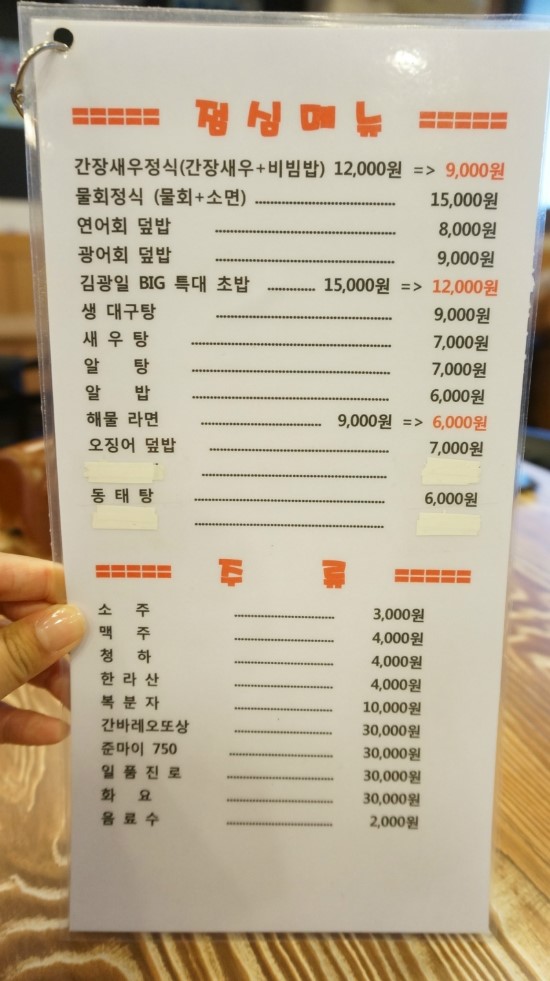 점심메뉴
간장새우정식(간장새우+비빔밥) 12,000원 => 9,000원
물회정식 (물회+소면) 15,000원
연어회 덮밥 8,000원
광어회 덮밥 9,000원
김광일 BIG 특대 초밥 15,000원 => 12,000원
생 대구탕 9,000원
새 우 탕 7,000원
알 탕 7,000원
알 밥 6,000원
해물 라면 9,000원 => 6,000원
오징어 덮밥 7,000원
동 태 탕 6,000원
주 류
소 주 3,000원
맥 주 4,000원
청 하 4,000원
한 라 산 4,000원
복 분 자 10,000원
간바레오또상 30,000원
준마이 750 30,000원
일 품 진 로 30,000원
화 요 30,000원
음 료 수 2,000원